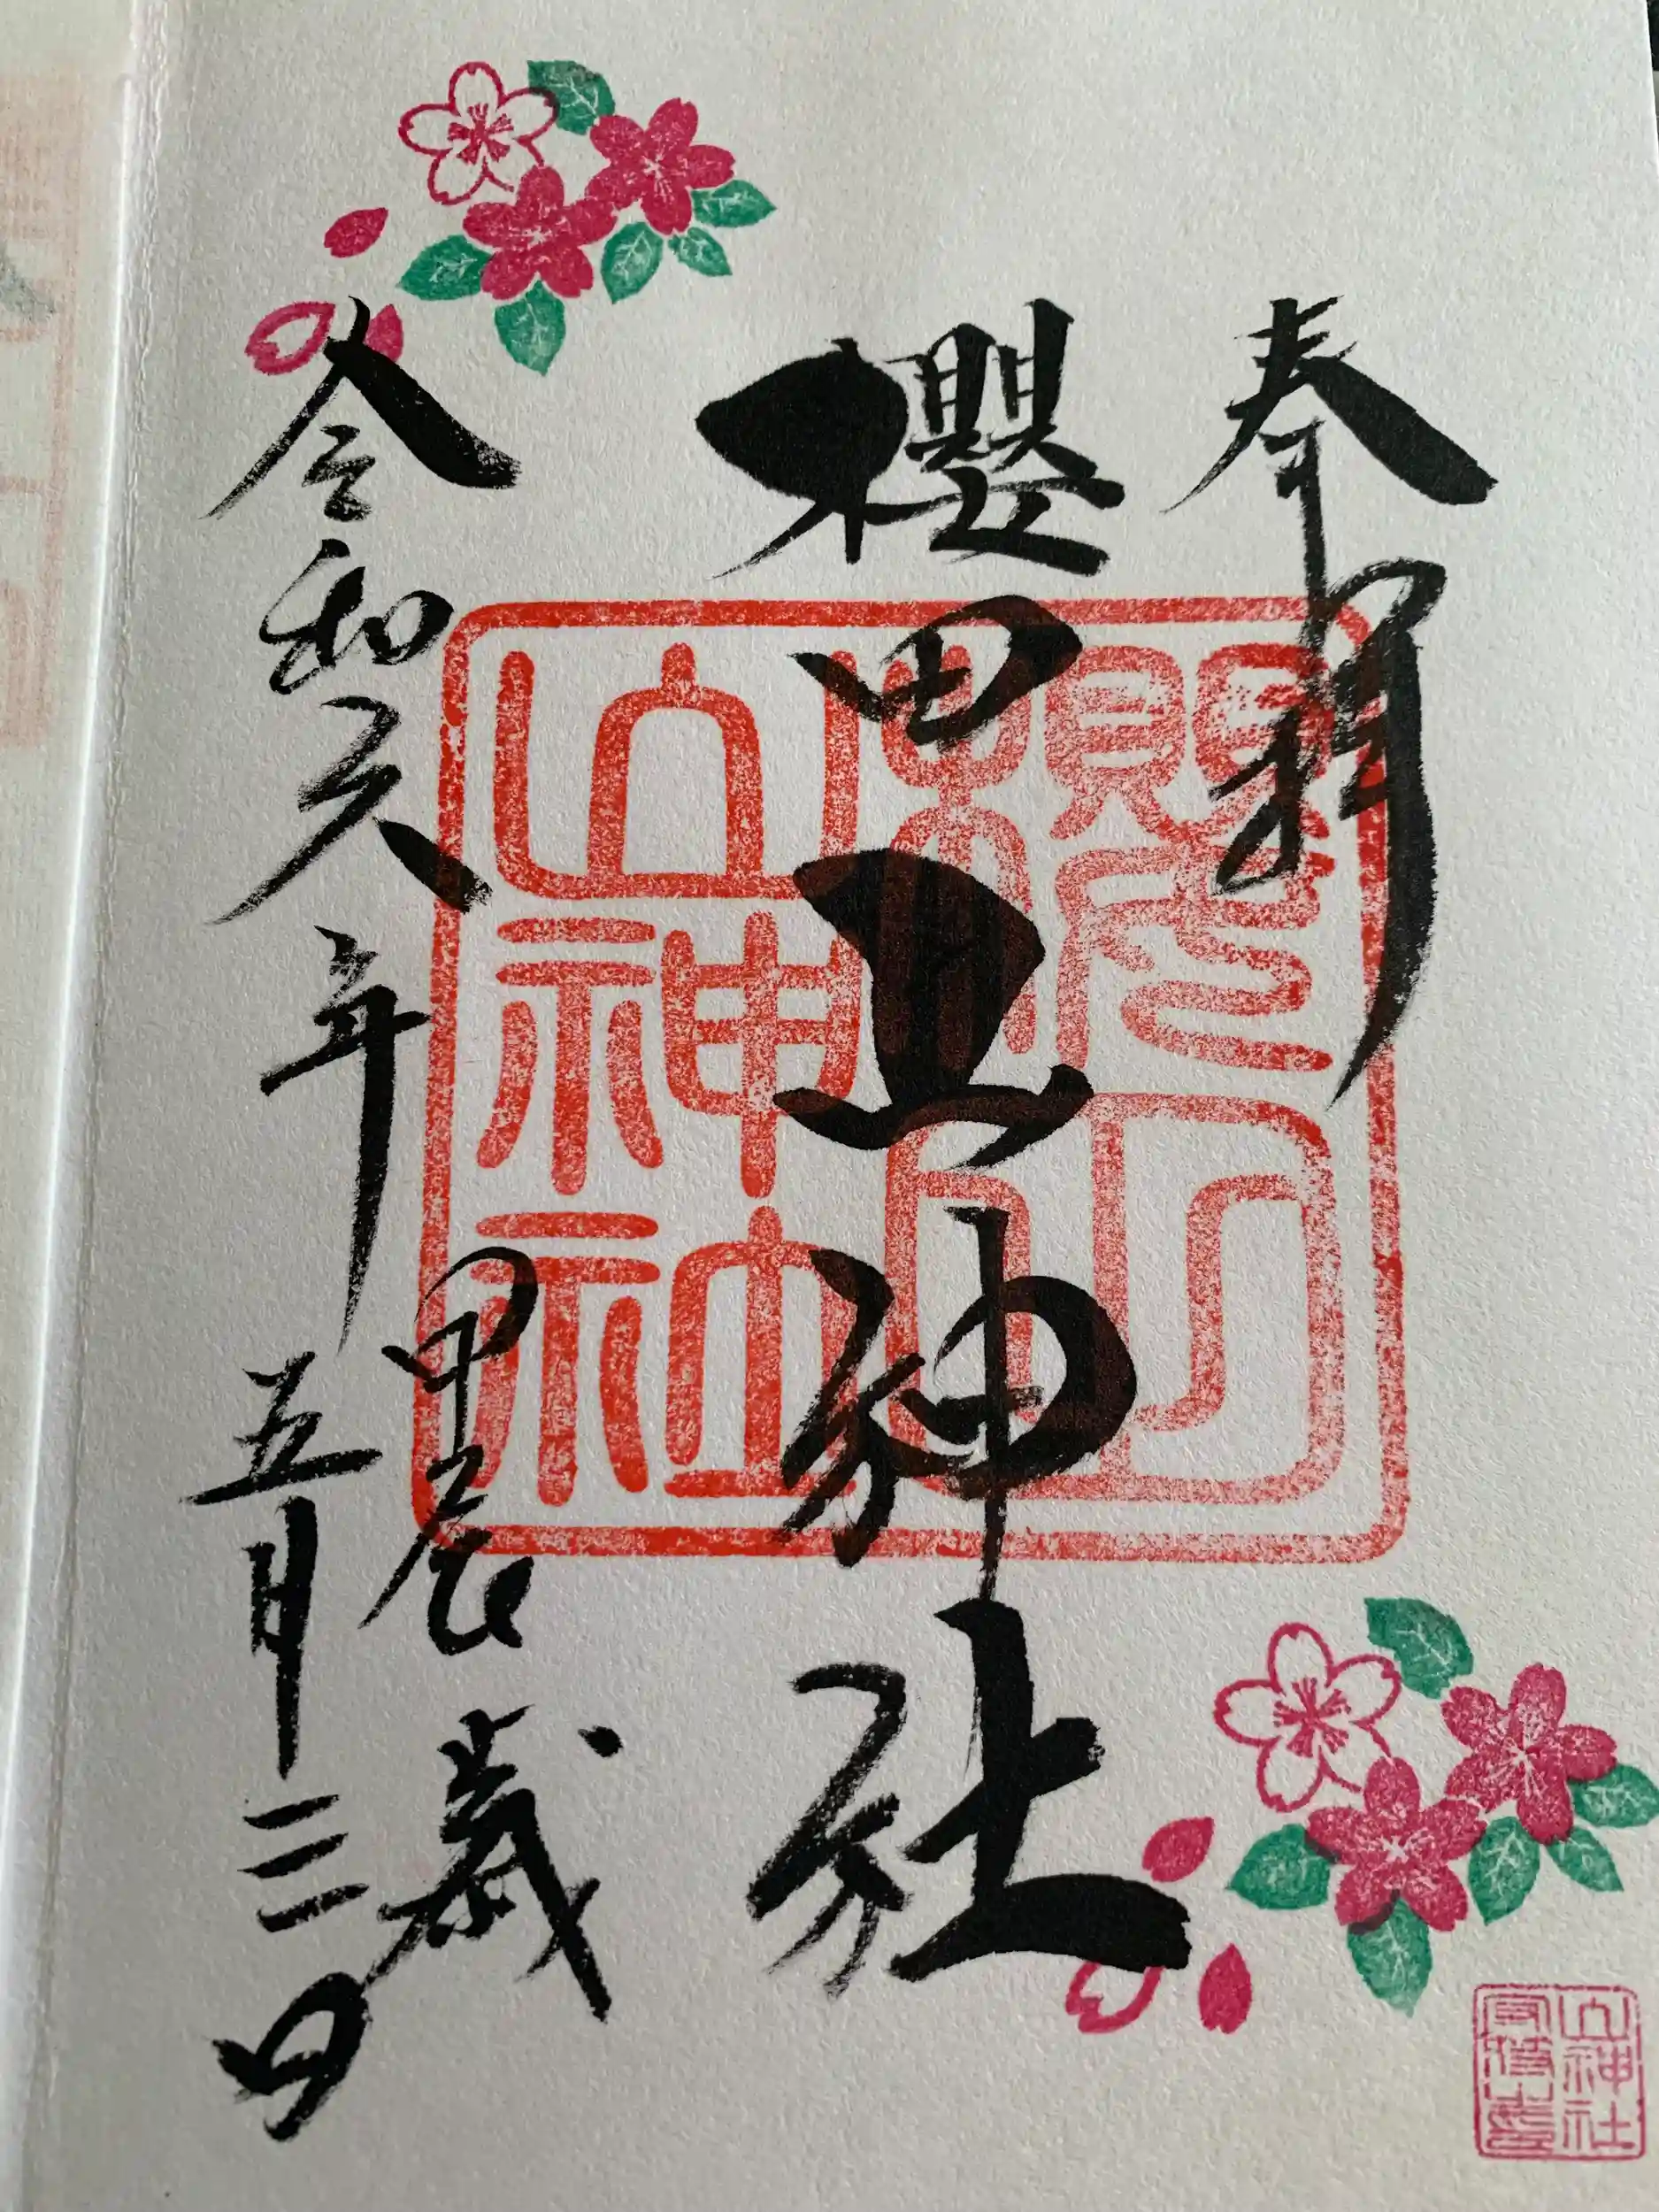 奉拝
櫻田山神社
甲辰歳
令和六年 五月三日
櫻田
山神社
山神社